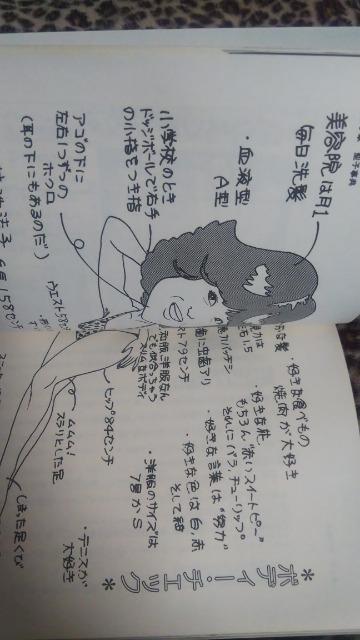 *ボディー・チェック*
美容院は月1
毎日洗髪
・血液型
A型
小学校のとき
ドッジボールで右手
の小指をつき指
アゴの下に
左右1つずつの
ホクロ
(耳の下にもあるのだ)
・好きな食べもの
焼肉が大好き
・好きな花
もちろん"赤いスイートピー"
それにバラ、チューリップ。
・好きな言葉は"努力"
・好きな色は白、赤
そして紺
・洋服のサイズは
7号かS
・テニスが
大好き
歯に虫歯アリ
スト79センチ
ウエスト58セン
ヒップ84センチ
ムムム!
スラリとした足
しまった足くび